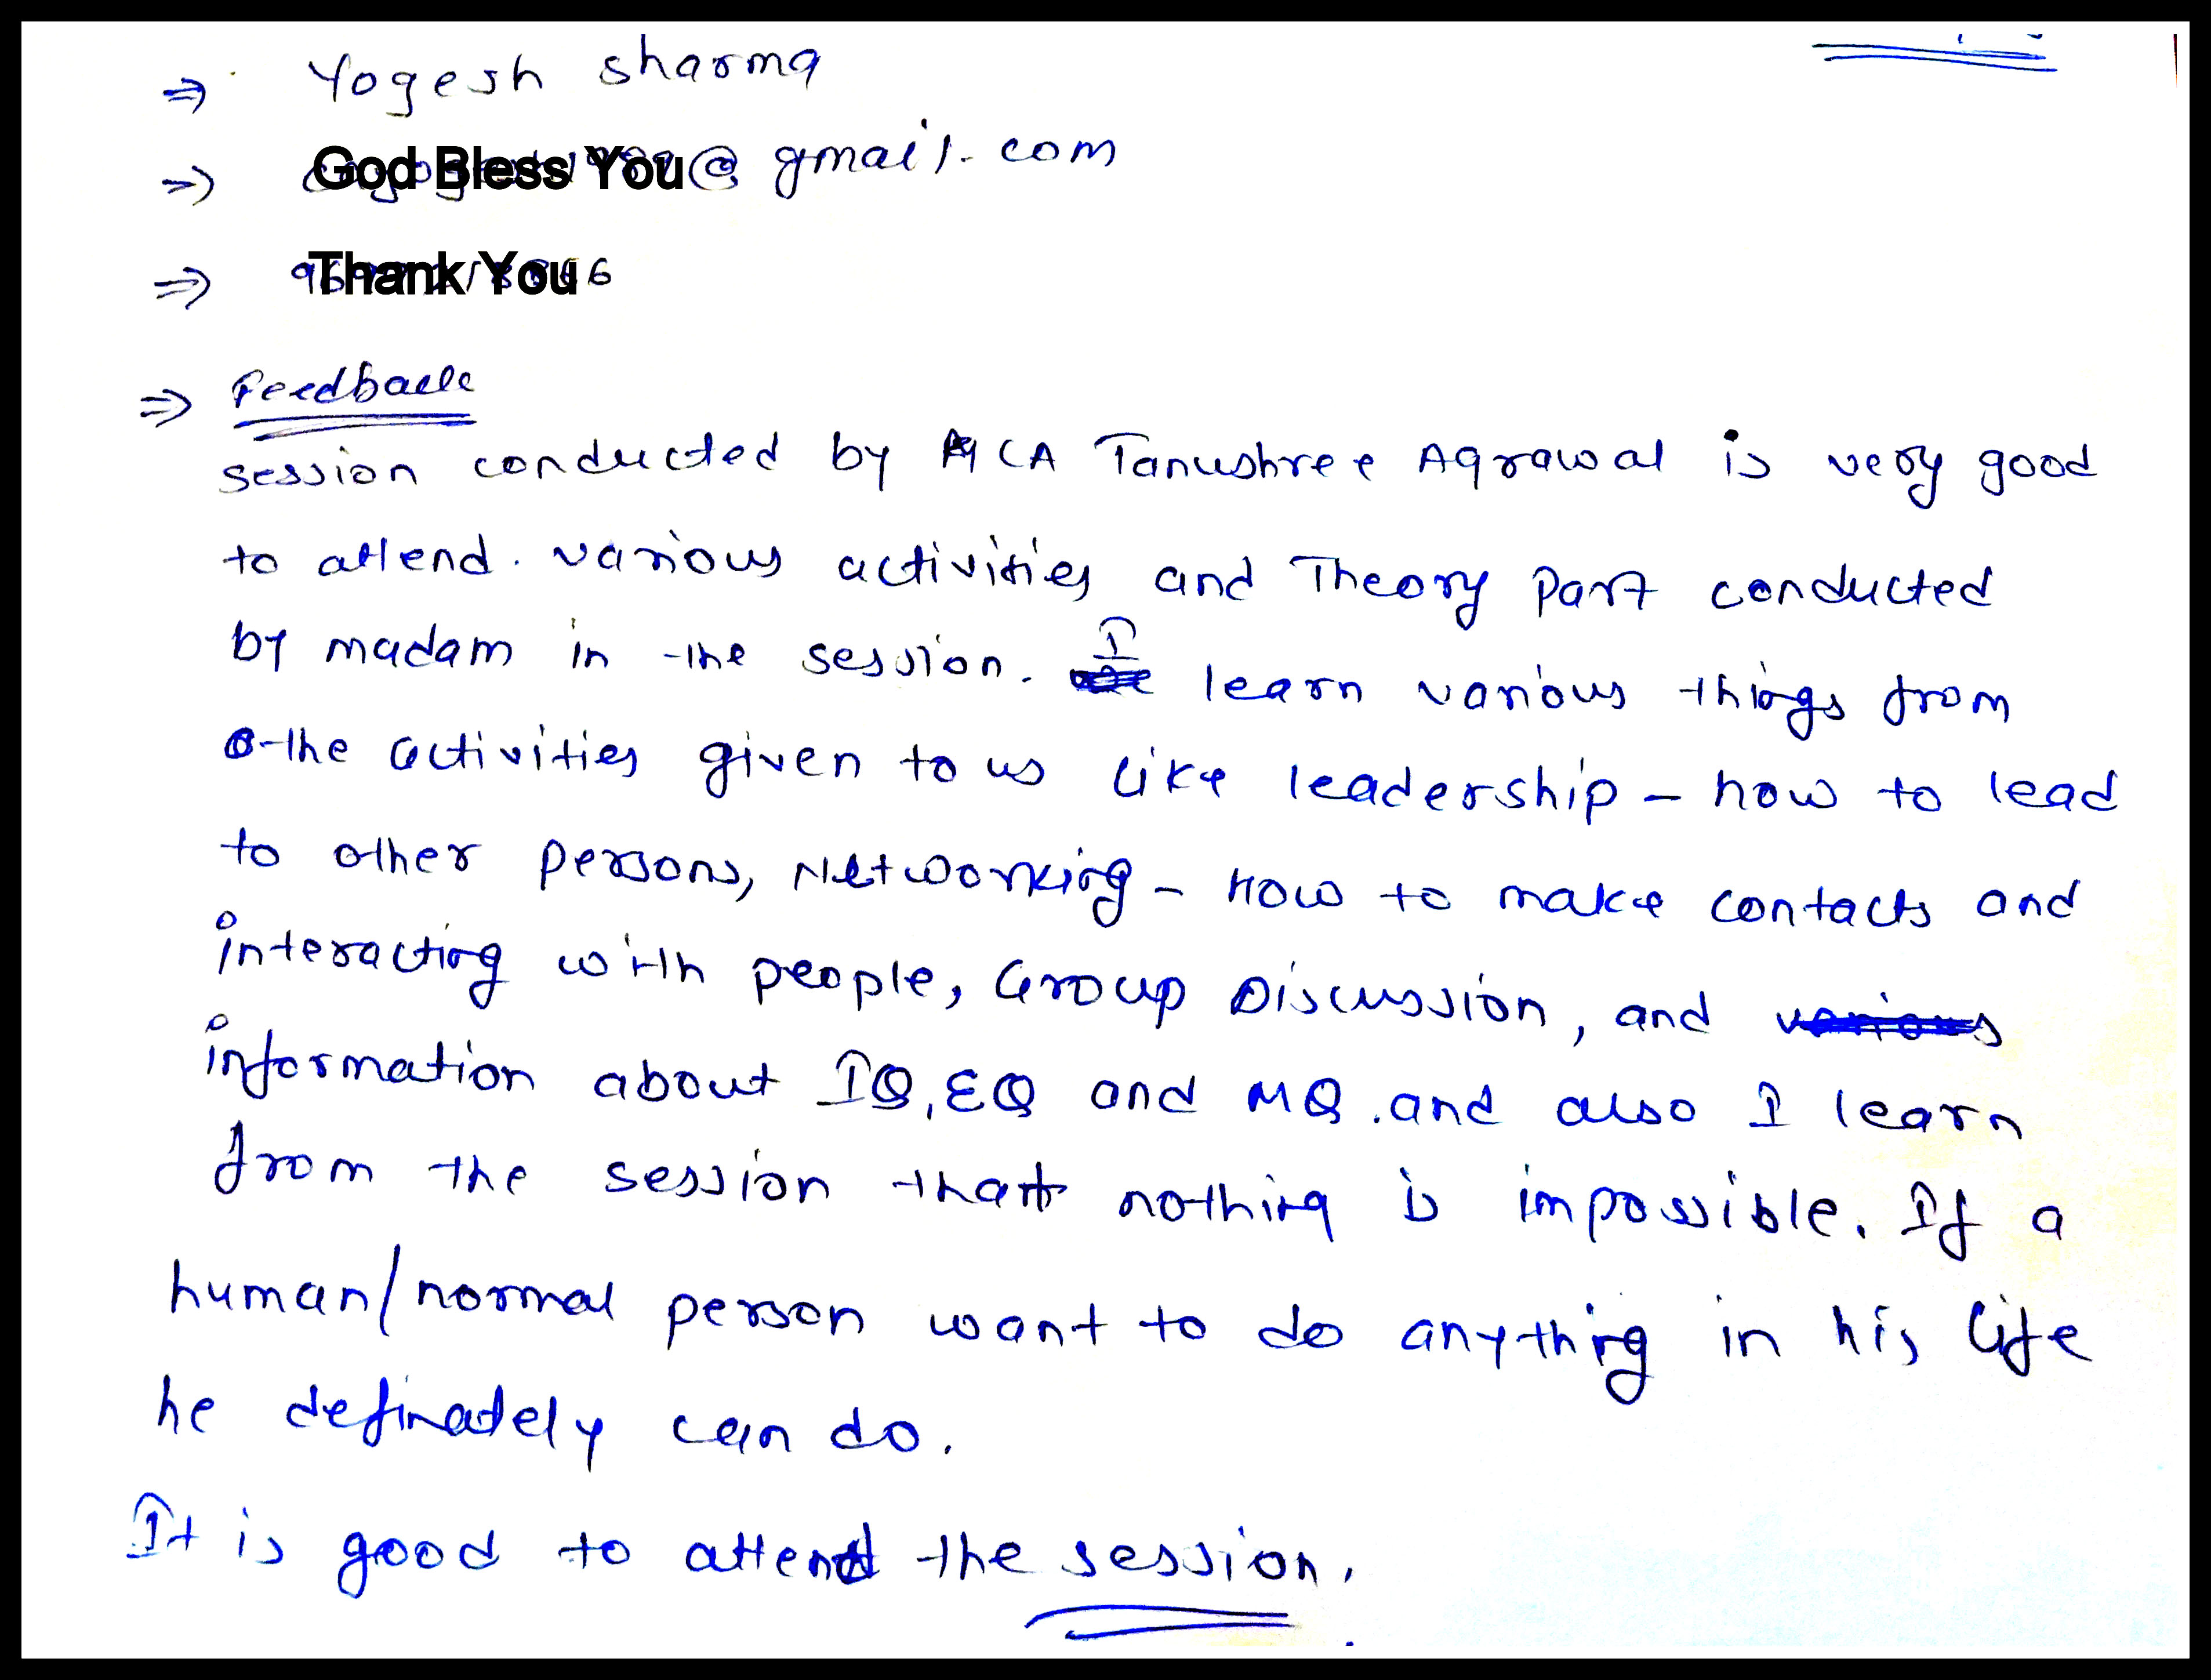 ⇒ Yogesh sharma
⇒ God Bless You @gmail.com
⇒ Thank You
⇒ Feedback
session conducted by CA Tanushree Agrawal is very good
to attend. various activities and Theory Part conducted
by madam in the session. I learn various things from
the activities given to us like leadership - how to lead
to other persons, Networking - how to make contacts and
interacting with people, Group Discussion, and various
information about IQ, EQ and MQ. and also I learn
from the session that nothing is impossible. If a
human/normal person want to do anything in his life
he definately can do.
It is good to attend the session.